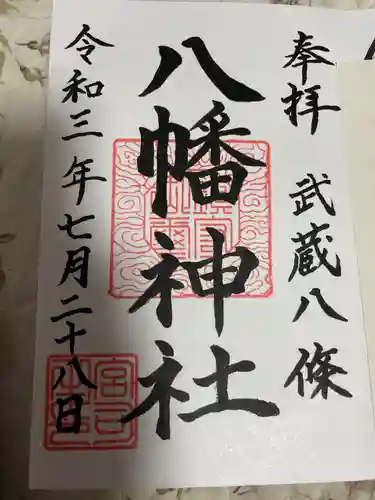 奉拝 武蔵八條
八幡神社
令和三年七月二十八日